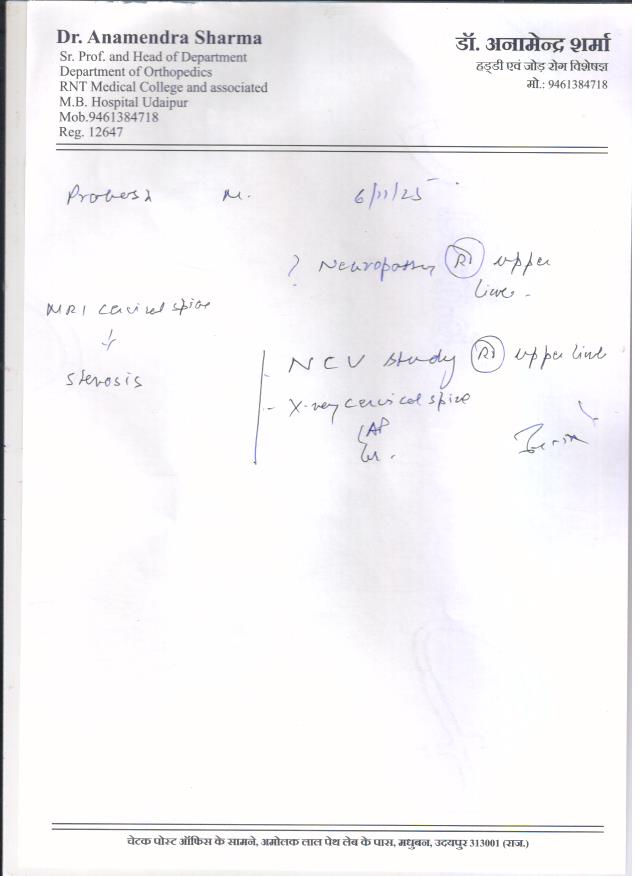 Dr. Anamendra Sharma
Sr. Prof. and Head of Department
Department of Orthopedics
RNT Medical College and associated
M.B. Hospital Udaipur
Mob.9461384718
Reg. 12647
डॉ. अनामेन्द्र शर्मा
हड्डी एवं जोड़ रोग विशेषज्ञ
मो.: 9461384718
M. 6/11/25
? Neuropathy Rt upper
MRI cervical spine
Stenosis
- NCV study Rt upper
- X-ray cervical spine
AP
चेटक पोस्ट ऑफिस के सामने, अमोलक लाल पेथ लेब के पास, मधुबन, उदयपुर 313001 (राज.)